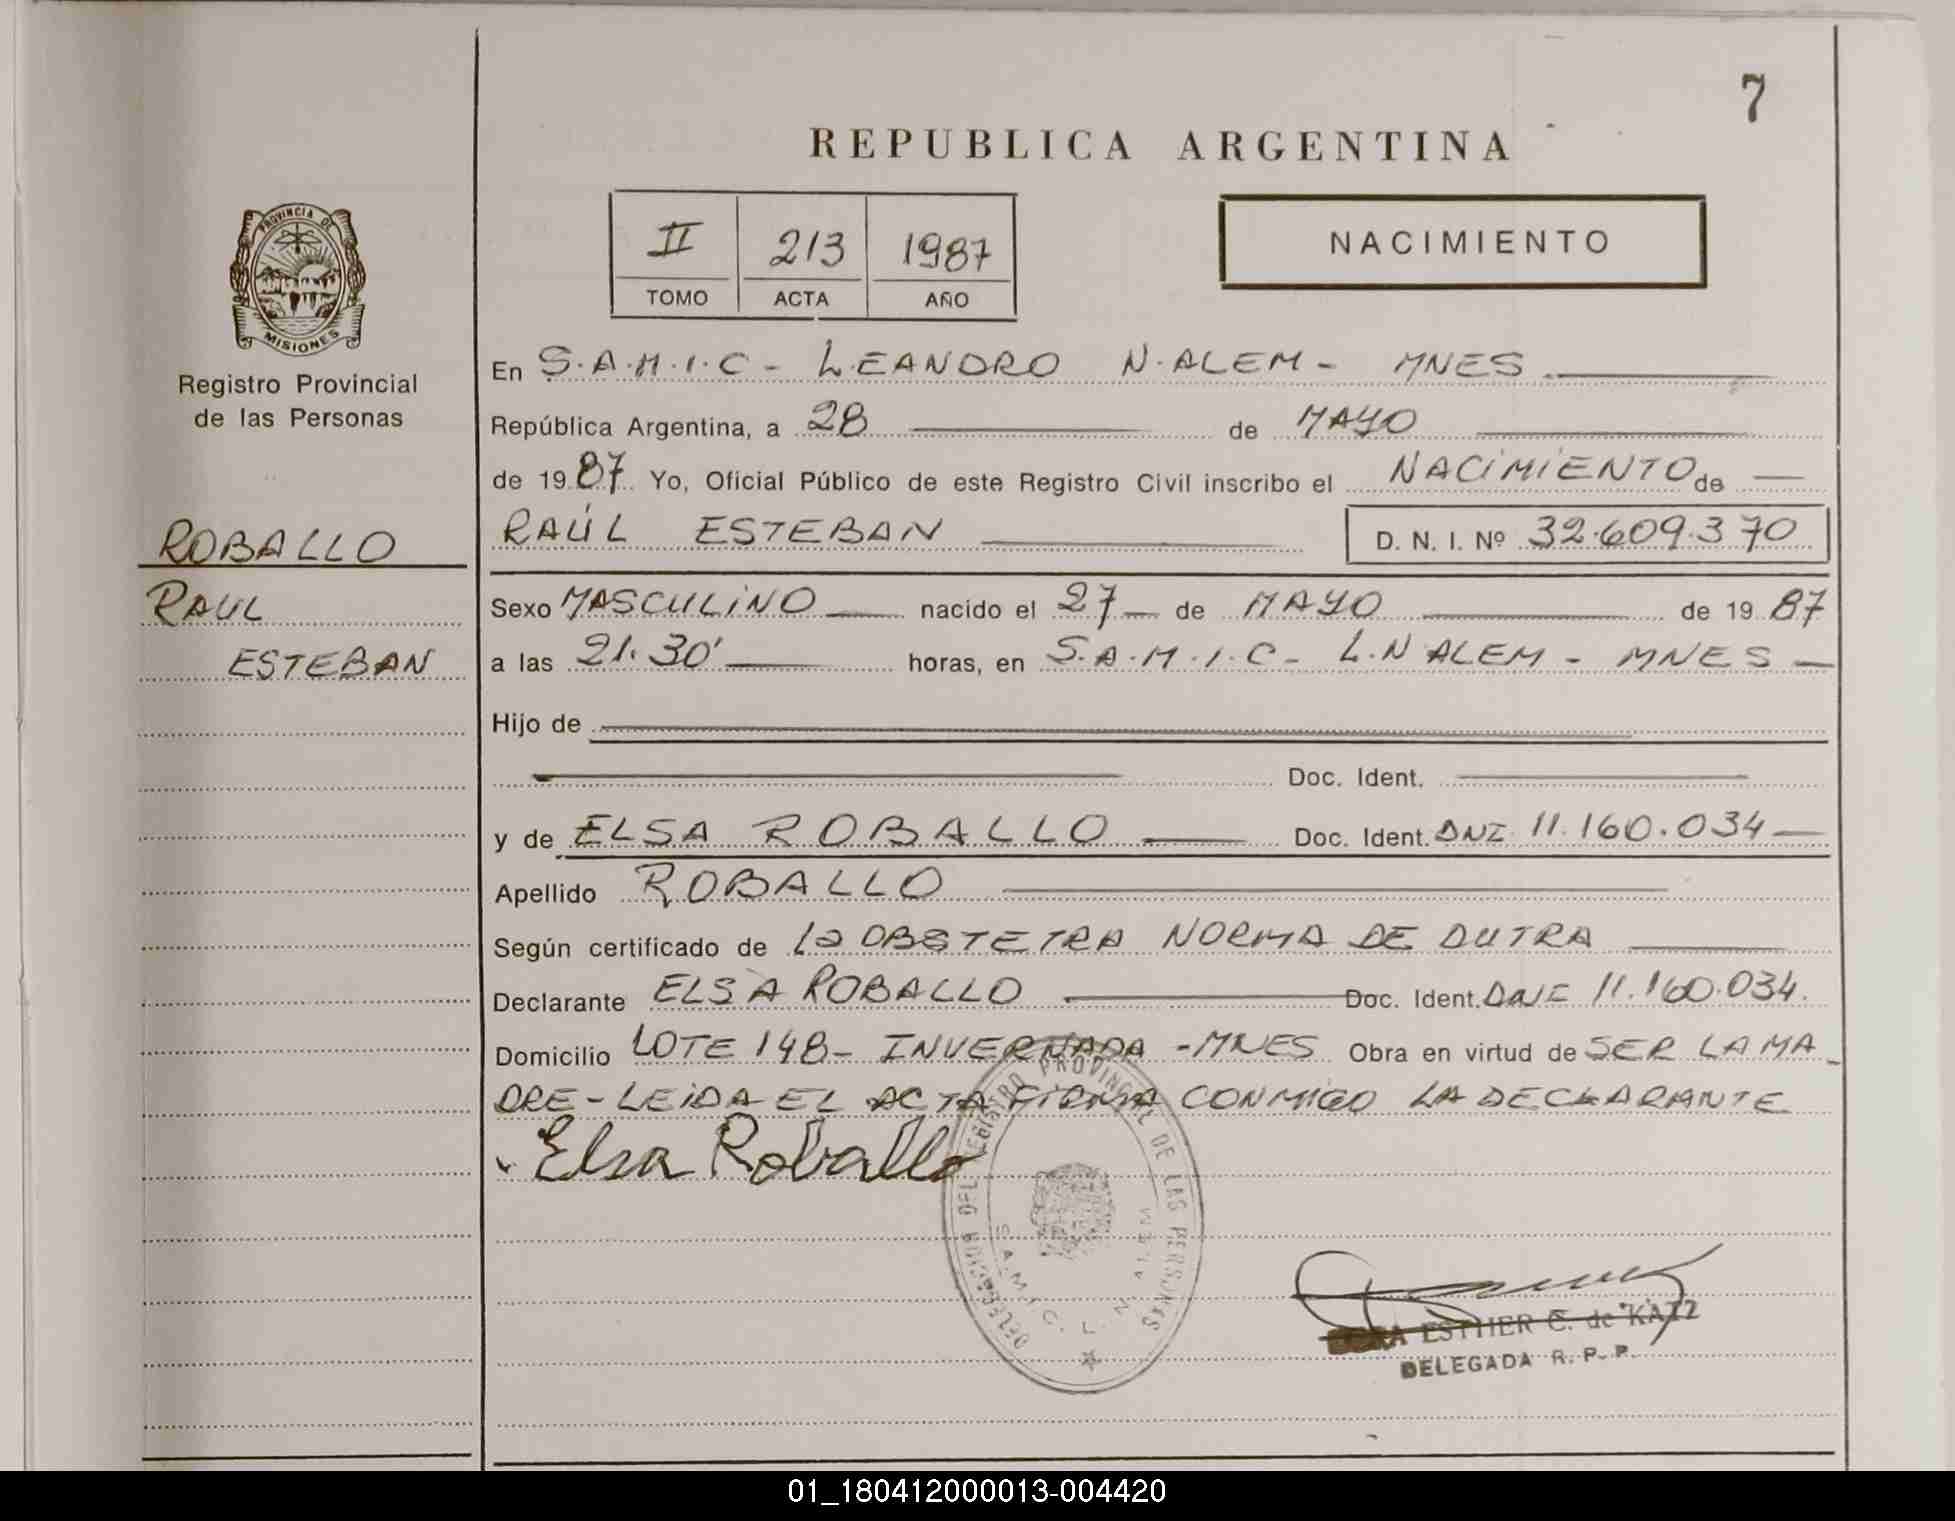 7
REPUBLICA ARGENTINA
PROVINCIA DE
MISIONES
Registro Provincial
de las Personas
II 213 1987
TOMO ACTA AÑO
NACIMIENTO
En S.A.M.I.C - LEANDRO N. ALEM - MNES
República Argentina, a 28 de MAYO
de 1987 Yo, Oficial Público de este Registro Civil inscribo el NACIMIENTO de
RAÚL ESTEBAN D. N. I. Nº 32.609.370
ROBALLO
RAUL
ESTEBAN
Sexo MASCULINO nacido el 27 de MAYO de 1987
a las 21.30' horas, en S.A.M.I.C - L.N ALEM - MNES
Hijo de
Doc. Ident.
y de ELSA ROBALLO Doc. Ident. DNI 11.160.034
Apellido ROBALLO
Según certificado de La OBSTETRA NORMA DE DUTRA
Declarante ELSA ROBALLO Doc. Ident. DNI 11.160.034.
Domicilio LOTE 148 - INVERNADA - MNES Obra en virtud de SER LA MA-
DRE - LEIDA EL ACTA FIRMA CONMIGO LA DECLARANTE
Elsa Roballo
DELEGACION DEL REGISTRO PROVINCIAL DE LAS PERSONAS
S.A.M.I.C. L. N. ALEM
ESTHER C. de KATZ
DELEGADA R. P. P.
01_180412000013-004420